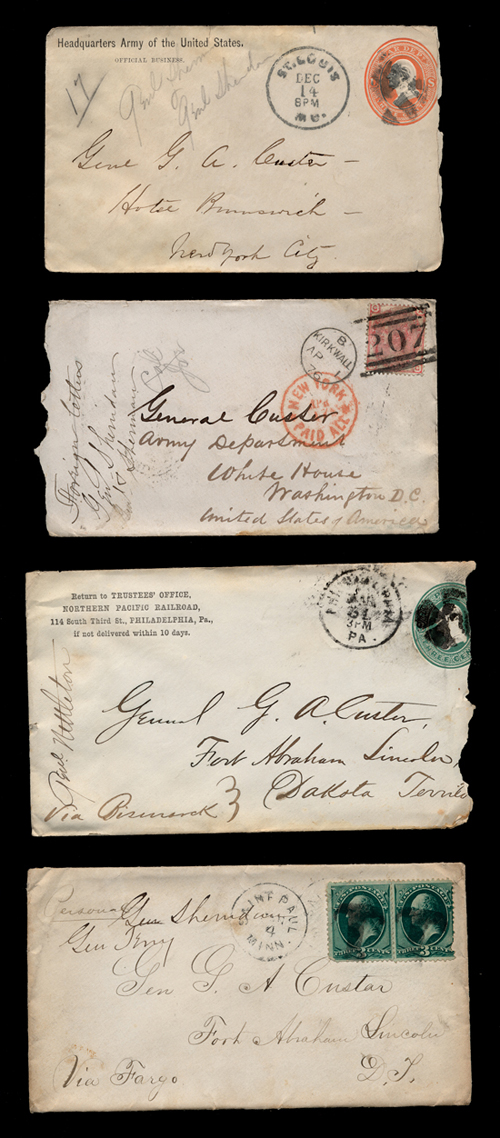 Headquarters Army of the United States.
OFFICIAL BUSINESS.
17
Genl Sherman
Genl Sheridan
ST. LOUIS
DEC
14
6PM
MO.
Genl G. A. Custer –
Hotel Brunswick –
New York City.
207
KIRKWALL
B
AP 1
76
NEW YORK
PAID ALL
Foreign Letters
Gen Sheridan
Sherman
Call
for
General Custer
Army Department
White House
Washington D.C.
United States of America
Return to TRUSTEES' OFFICE,
NORTHERN PACIFIC RAILROAD,
114 South Third St., PHILADELPHIA, Pa.,
if not delivered within 10 days.
PHILADELPHIA
MAR
3PM
PA.
THREE CEN
Genl Nettleton
General G. A. Custer,
Fort Abraham Lincoln,
Dakota Territo
Via Bismarck }
Personal
Gen Sheridan
Gen Terry
SAINT PAUL
4
MINN.
U.S. POSTAGE
THREE 3 CENTS
U.S. POSTAGE
THREE 3 CENTS
Gen G. A Custar
Fort Abraham Lincoln
Via Fargo
D. T.